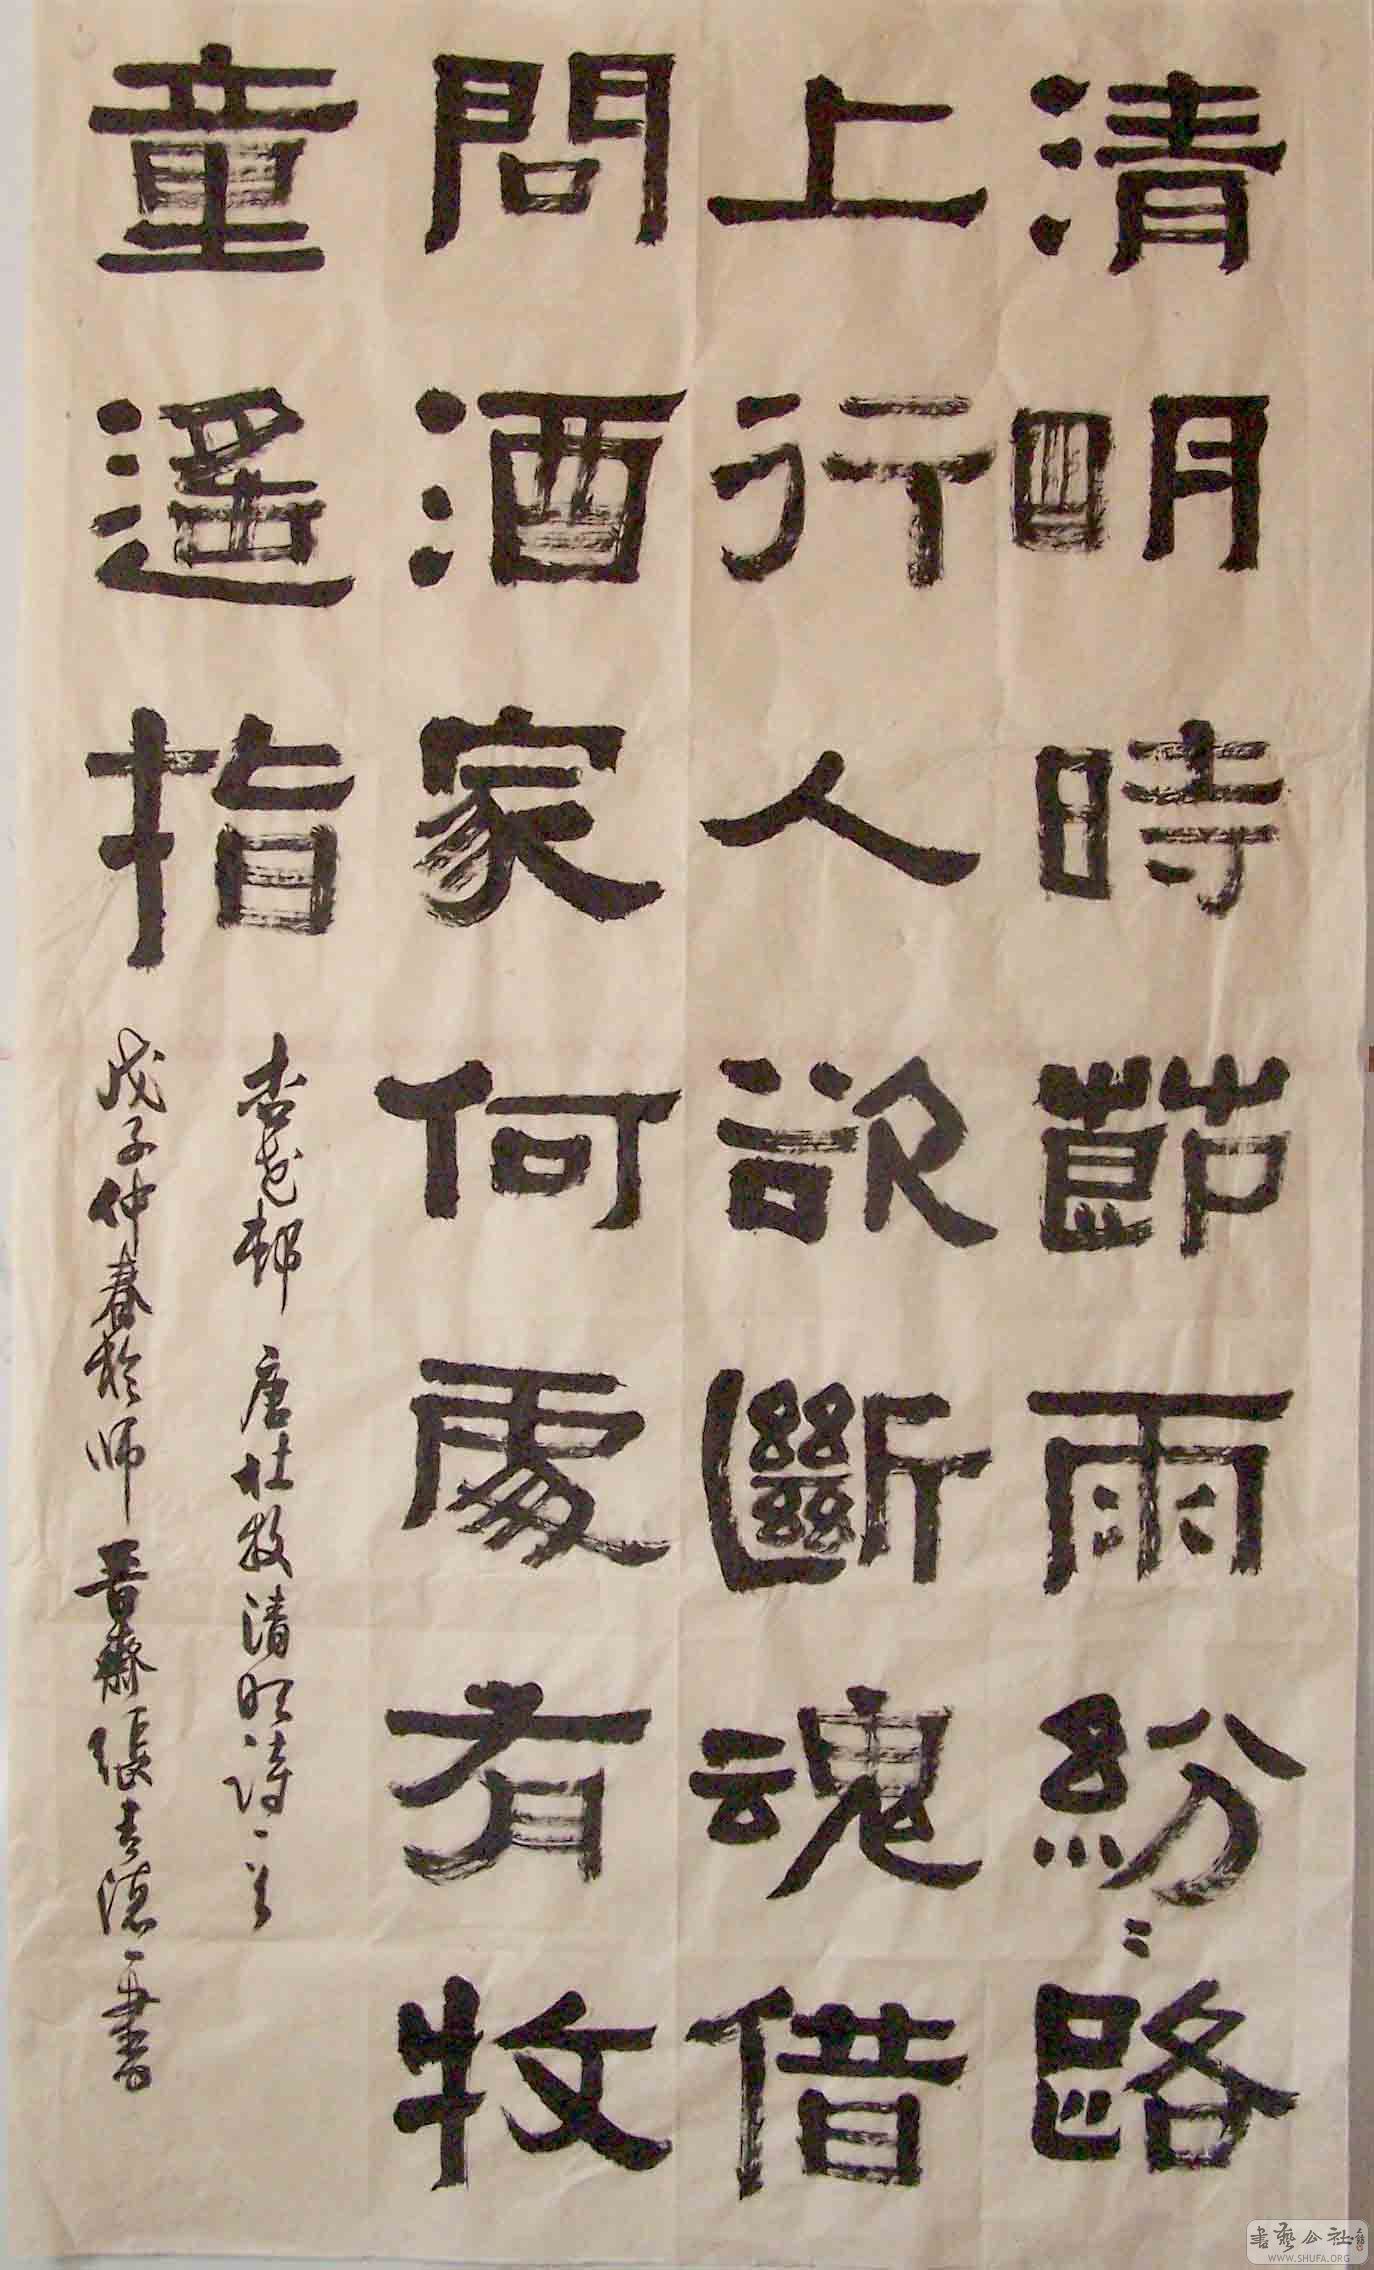 清明時節雨紛〻路
上行人欲斷魂借
問酒家何處有牧
童遥指
杏花邨 唐杜牧清明詩一首
戊子仲春於师晋齋張吉德書
書藝公社
WWW.SHUFA.ORG